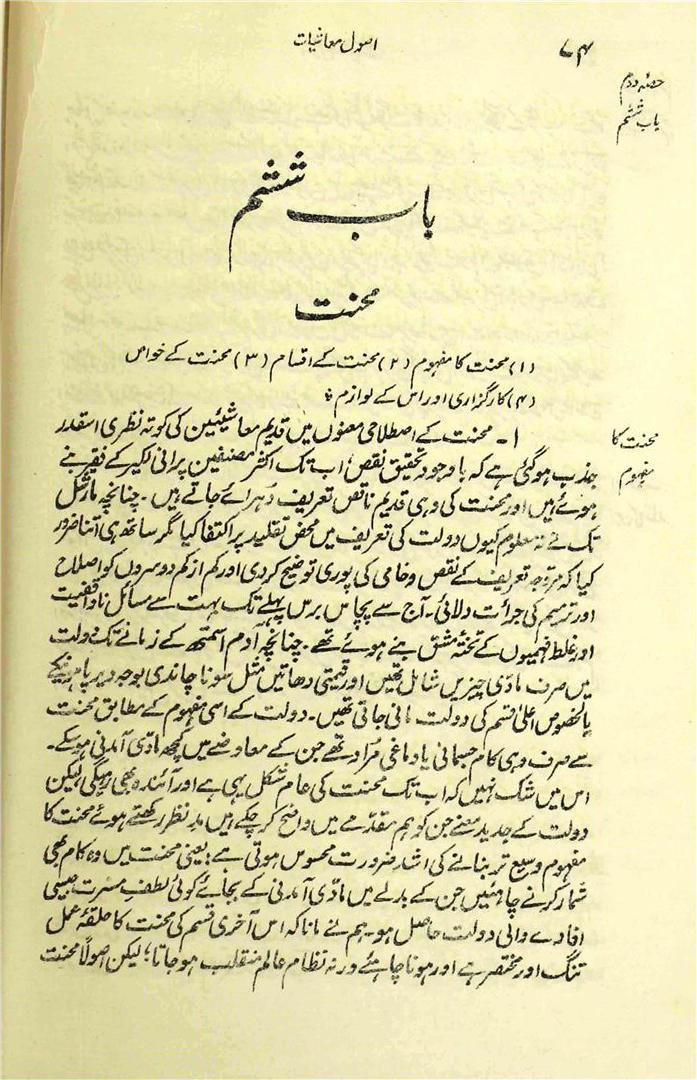 ۷۴
اصول معاشیات
حصہ دوم
باب ششم
باب ششم
محنت
(۱) محنت کا مفہوم (۲) محنت کے اقسام (۳) محنت کے خواص
(۴) کارگزاری اور اس کے لوازم
محنت کا
مفہوم
۱۔ محنت کے اصطلاحی معنوں میں قدیم معاشیئین کی کوتہ نظری اسقدر
جذب ہوگئی ہے کہ باوجود تحقیق نقص، اب تک اکثر مصنفین پرانی لکیر کے فقیر بنے
ہوئے ہیں اور محنت کی وہی قدیم ناقص تعریف دہرائے جاتے ہیں۔ چنانچہ مارشل
تک نے نہ معلوم کیوں دولت کی تعریف میں محض تقلید پر اکتفا کیا مگر ساتھ ہی اتنا ضرور
کیا کہ مروجہ تعریف کے نقص و خامی کی پوری توضیح کردی اور کم از کم دوسروں کو اصلاح
اور ترمیم کی جرائت دلائی۔ آج سے پچاس برس پہلے تک بہت سے مسائل ناواقفیت
اور غلط فہمیوں کے تختہ مشق بنے ہوئے تھے۔ چنانچہ آدم اسمتھ کے زمانے تک دولت
میں صرف مادّی چیزیں شامل تھیں اور قیمتی دھاتیں مثل سونا چاندی بوجہ دیرپا ہونیکے
بالخصوص اعلیٰ قسم کی دولت مانی جاتی تھیں۔ دولت کے اسی مفہوم کے مطابق محنت
سے صرف وہی کام جسمانی یا دماغی مُراد تھے جن کے معاوضے میں کچھ مادّی آمدنی ہوسکے۔
اس میں شک نہیں کہ اب تک محنت کی عام شکل یہی ہے اور آئندہ بھی رہیگی لیکن
دولت کے جدید معنے جن کو ہم مقدّمے میں واضح کرچکے ہیں مدِ نظر رکھتے ہوئے محنت کا
مفہوم وسیع تر بنانے کی اشد ضرورت محسوس ہوتی ہے؛ یعنی محنت میں وہ کام بھی
شمار کرنے چاہئیں جن کے بدلے میں مادّی آمدنی کے بجائے کوئی لطف مسرت جیسی
افادے والی دولت حاصل ہو۔ ہم نے مانا کہ اس آخری قسم کی محنت کا حلقۂ عمل
تنگ اور مختصر ہے اور ہونا چاہئے ورنہ نظام عالم منقلب ہوجاتا؛ لیکن اصولاً محنت